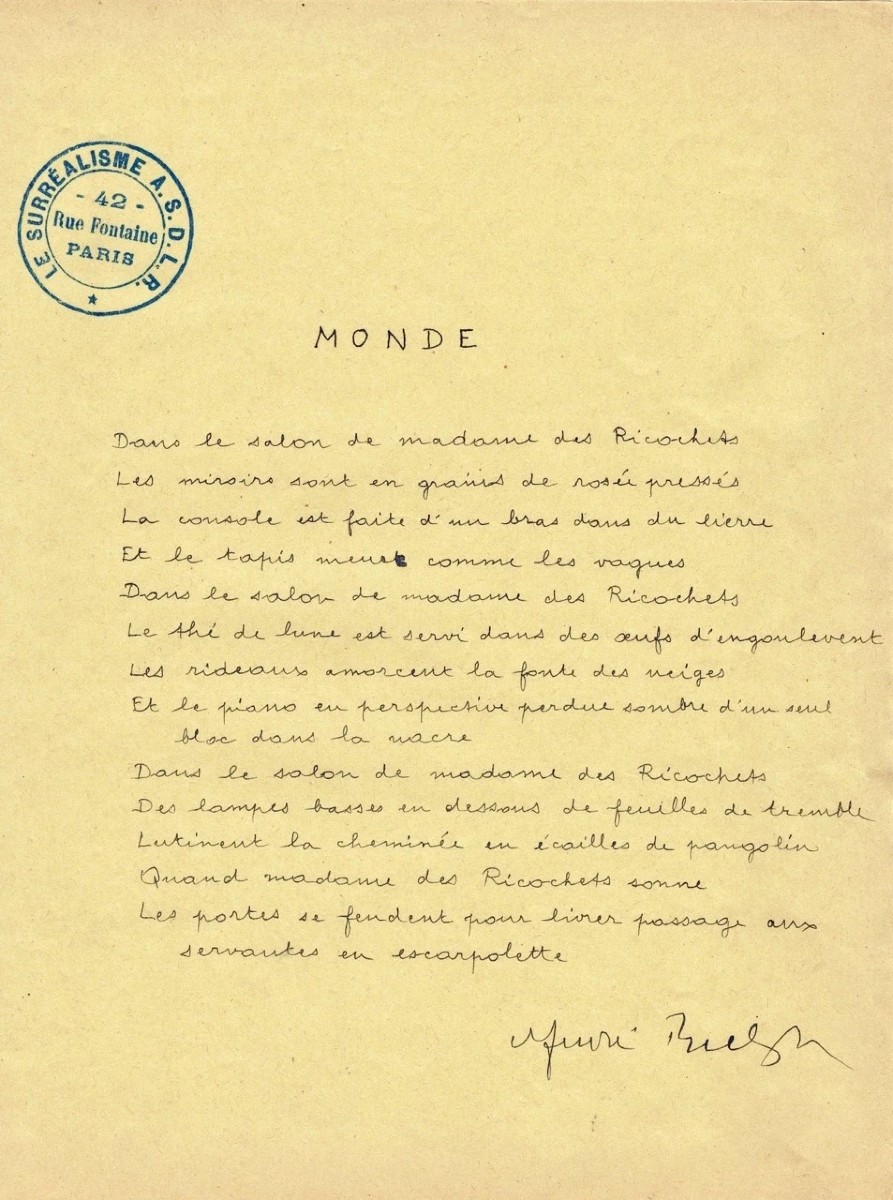 LE SURRÉALISME A.S.D.L.R.
- 42 -
Rue Fontaine
PARIS
MONDE
Dans le salon de madame des Ricochets
Les miroirs sont en grains de rosée pressés
La console est faite d'un bras dans du lierre
Et le tapis meurt comme les vagues
Dans le salon de madame des Ricochets
Le thé de lune est servi dans des œufs d'engoulevent
Les rideaux amorcent la fonte des neiges
Et le piano en perspective perdue sombre d'un seul
bloc dans la nacre
Dans le salon de madame des Ricochets
Des lampes basses en dessous de feuilles de tremble
Lutinent la cheminée en écailles de pangolin
Quand madame des Ricochets sonne
Les portes se fendent pour livrer passage aux
servantes en escarpolette
André Breton